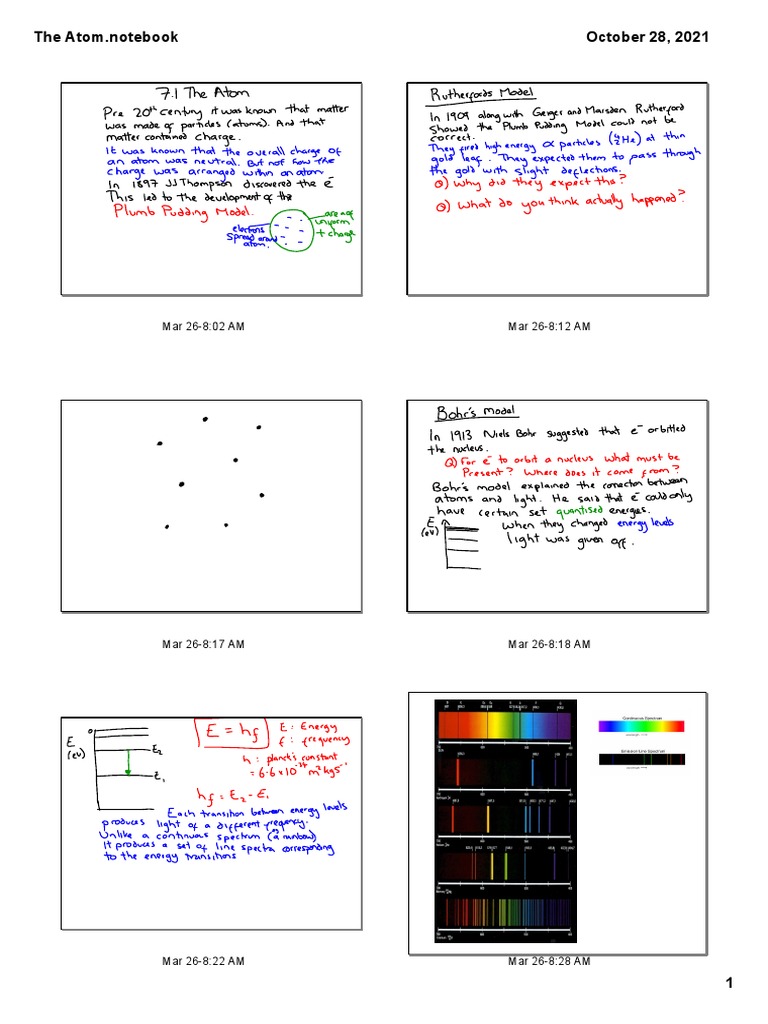 The Atom.notebook
October 28, 2021
7.1 The Atom
Pre 20th century it was known that matter
was made of particles (atoms). And that
matter contained charge.
It was known that the overall charge of
an atom was neutral. But not how the
charge was arranged within an atom
In 1897 JJ Thompson discovered the e-
This led to the development of the
Plumb Pudding Model.
electrons
spread around
atom.
uniform
+ charge
Mar 26-8:02 AM
Rutherfords Model
In 1909 along with Geiger and Marsden Rutherford
showed the Plumb Pudding Model could not be
correct.
They fired high energy α particles (4/2 He) at thin
gold leaf. They expected them to pass through
the gold with slight deflections.
Q) Why did they expect this?
Q) What do you think actually happened?
Mar 26-8:12 AM
Mar 26-8:17 AM
Bohr's model
In 1913 Niels Bohr suggested that e- orbitted
the nucleus.
Q) For e- to orbit a nucleus what must be
present? Where does it come from?
Bohr's model explained the connection between
atoms and light. He said that e- could only
have certain set quantised energies.
E
(eV)
When they changed energy levels
light was given off.
Mar 26-8:18 AM
0
E
(eV)
E2
E1
E = hf
E: Energy
f: frequency
h: planck's constant
= 6.6 x 10-34 m2 kg s-1
hf = E2 - E1
Each transition between energy levels
produces light of a different frequency.
Unlike a continuous spectrum (a rainbow)
It produces a set of line spectra corresponding
to the energy transitions
Mar 26-8:22 AM
Continuous Spectrum
Emission Line Spectrum
Mar 26-8:28 AM
1